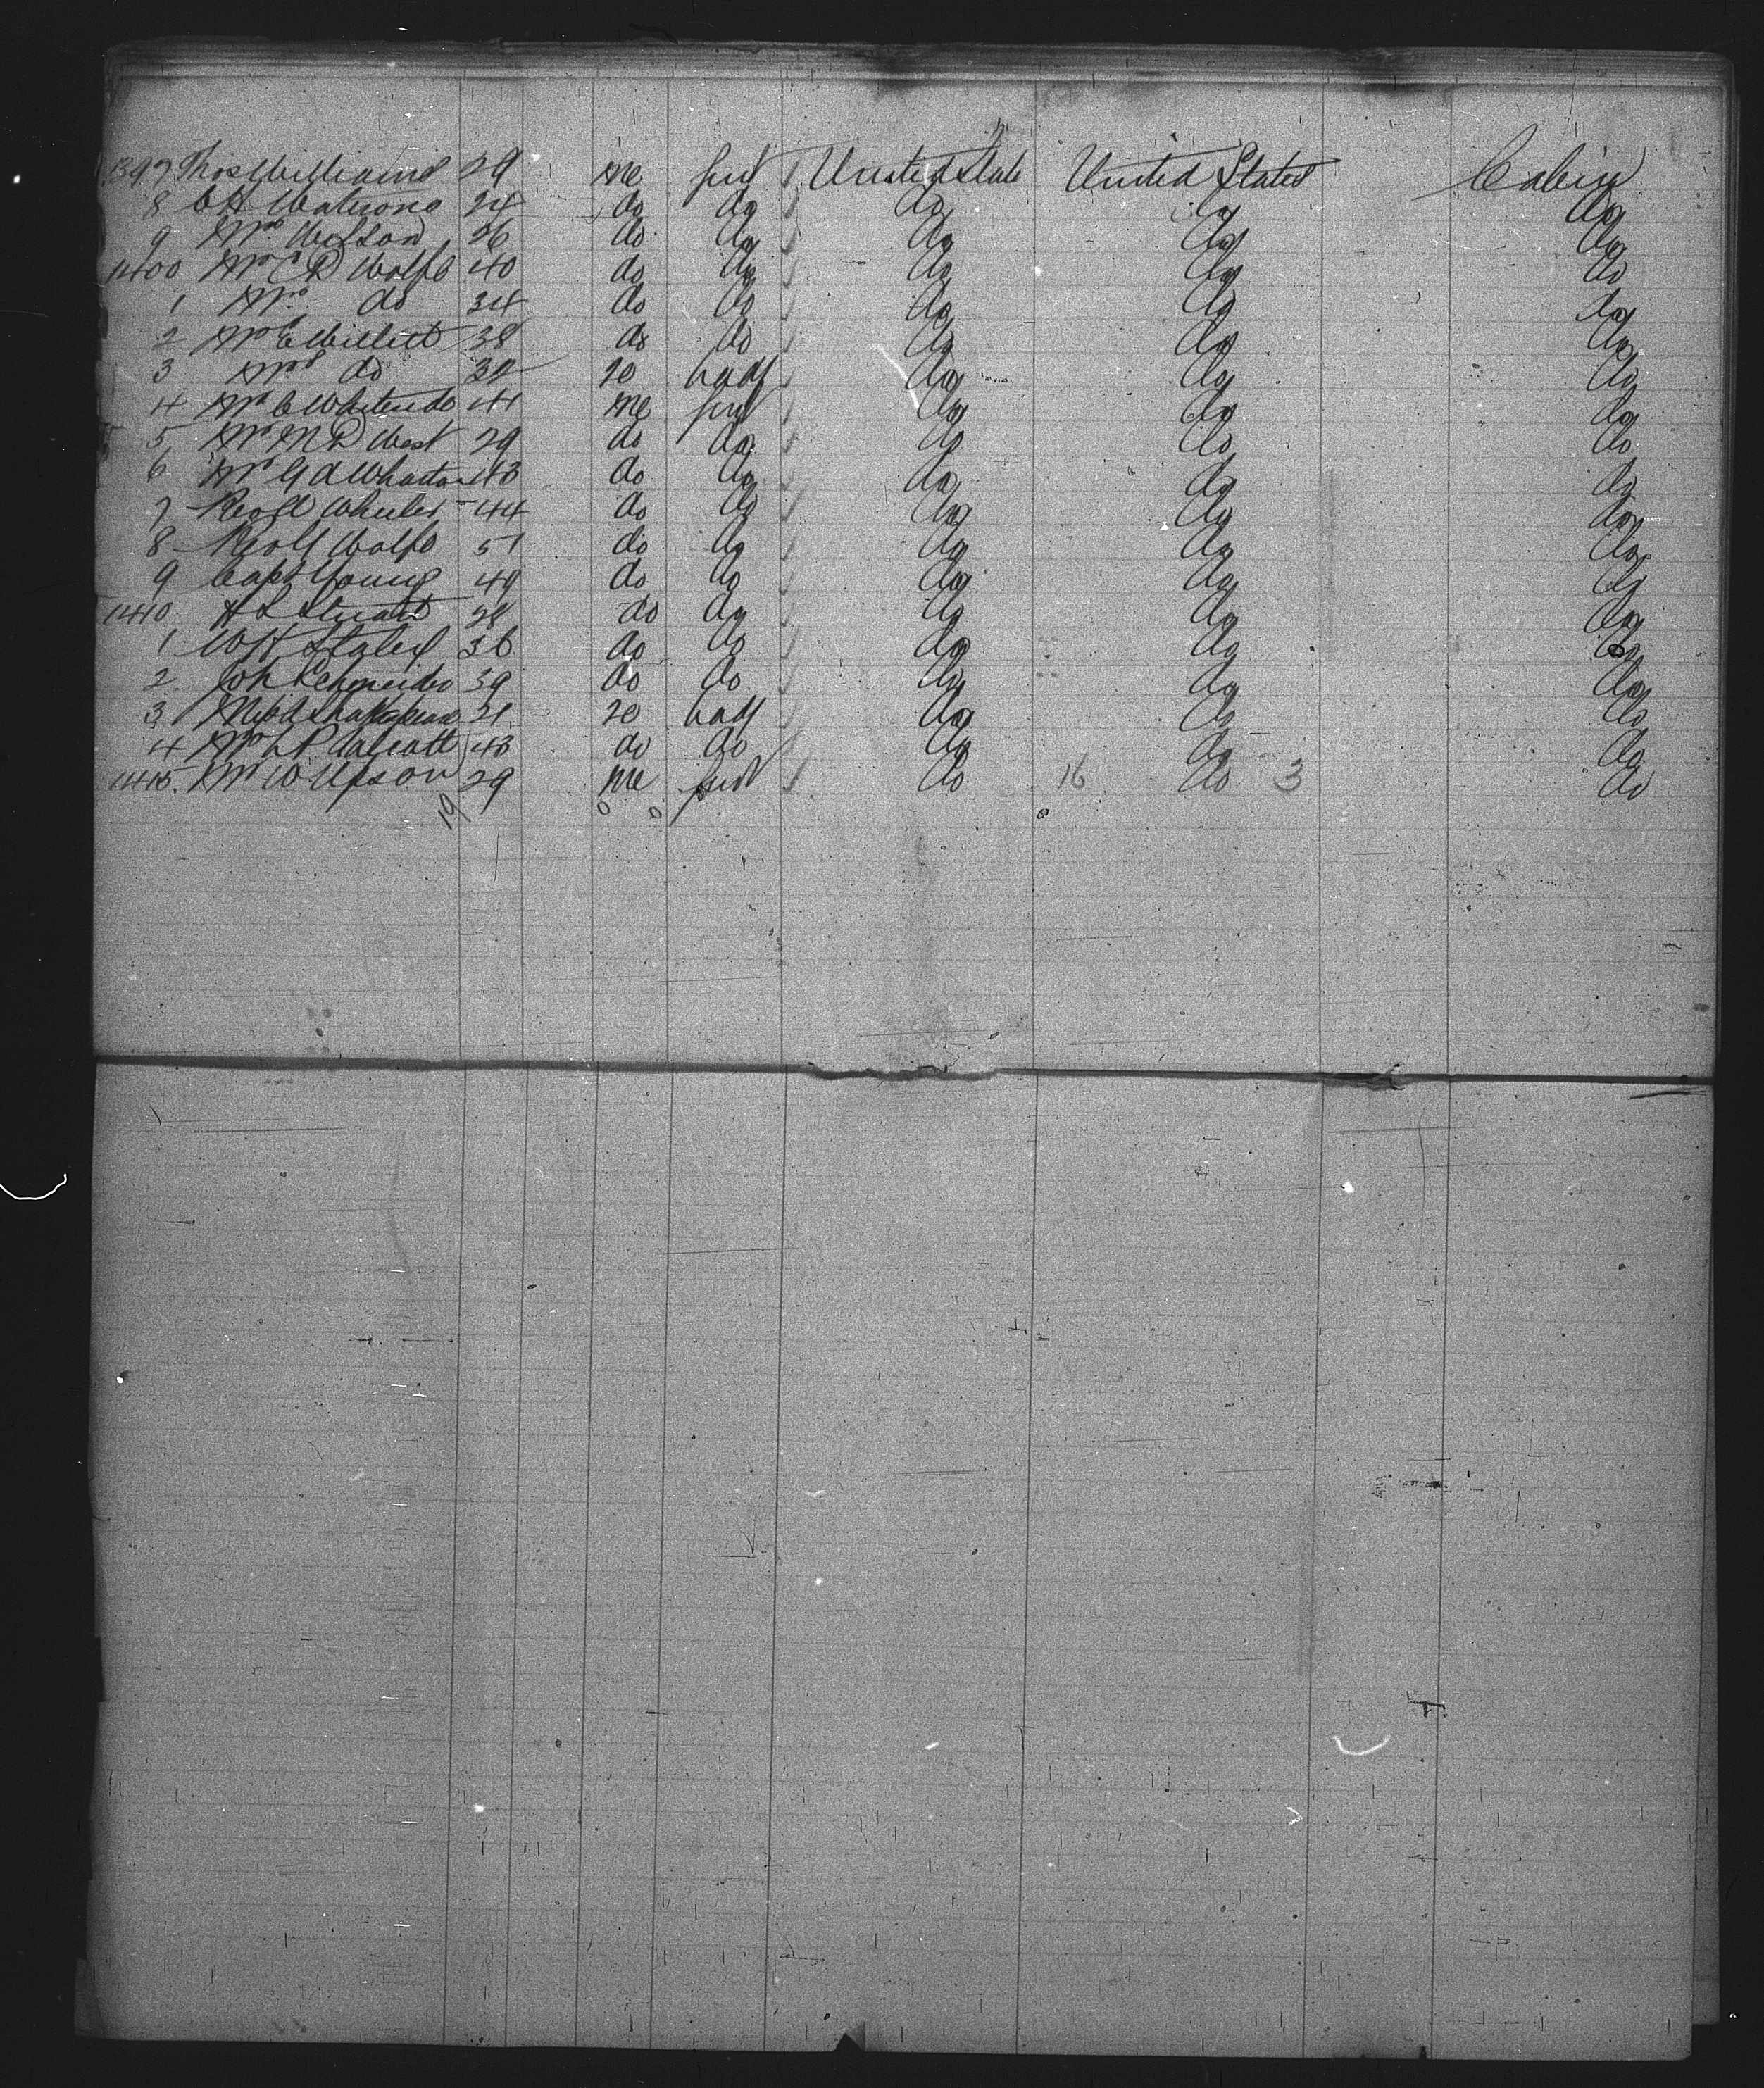 1397 Thos Williams 29 me gent United State United States Cabin
8 C H Watrons 24 do do do do do
9 Mrs Wilson 26 do do do do do
1400 Mr C D Wolfe 40 do do do do do
1 Mrs do 34 do do do do do
2 Mr E Willett 38 do do do do do
3 Mrs do 32 fe lady do do do
4 Mr C 41 me gent do do do
5 Mr M D West 29 do do do do do
6 Mr G A Whatton 43 do do do do do
7 Wheeler 44 do do do do do
8 Wolfe 51 do do do do do
9 Capt Young 49 do do do do do
1410 H L Stuart 28 do do do do do
1 W H Staley 36 do do do do do
2 Joh Schneider 39 do do do do do
3 Miss A 21 fe lady do do do
4 Mrs L P 43 do do do do do
1415. Mr W Upson 29 me gent do 16 do 3 do
19